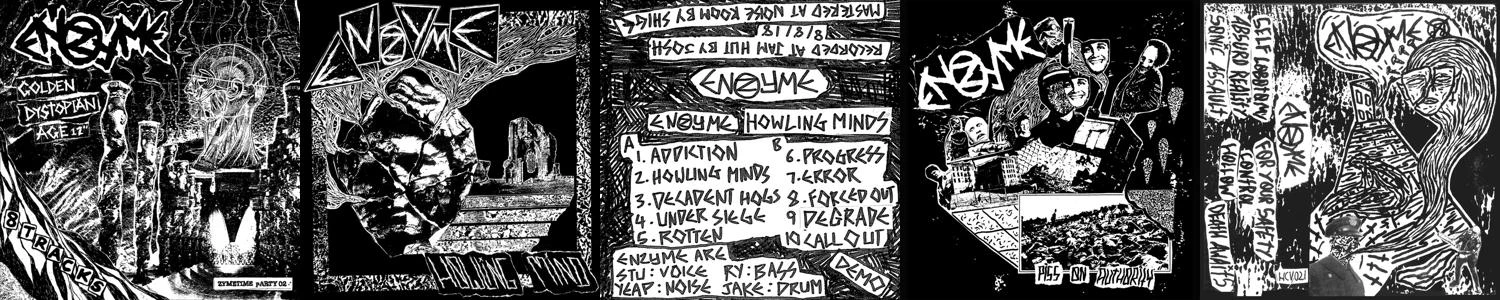 ENZYME
GOLDEN
DYSTOPIAN
AGE 12"
8 TRACKS
ZYMETIME PARTY 02
ENZYME
HOWLING MIND
MASTERED AT NOISE ROOM BY SHIGE
18/8/8
RECORDED AT JAM HUT BY JOSH
ENZYME
ENZYME HOWLING MINDS
A
1. ADDICTION
2. HOWLING MINDS
3. DECADENT HOGS
4. UNDER SIEGE
5. ROTTEN
B
6. PROGRESS
7. ERROR
8. FORCED OUT
9 DEGRADE
10 CALL OUT
ENZYME ARE
STU: VOICE RY: BASS
YEAP: NOISE JAKE: DRUM
DEMO
ENZYME
PISS ON AUTHORITY
ENZYME
SELF LOBOTOMY
ABSURD REALITY
SONIC ASSAULT
ENZYME
FOR YOUR SAFETY
CONTROL
FOLLOW
DEATH AWAITS
HCV021